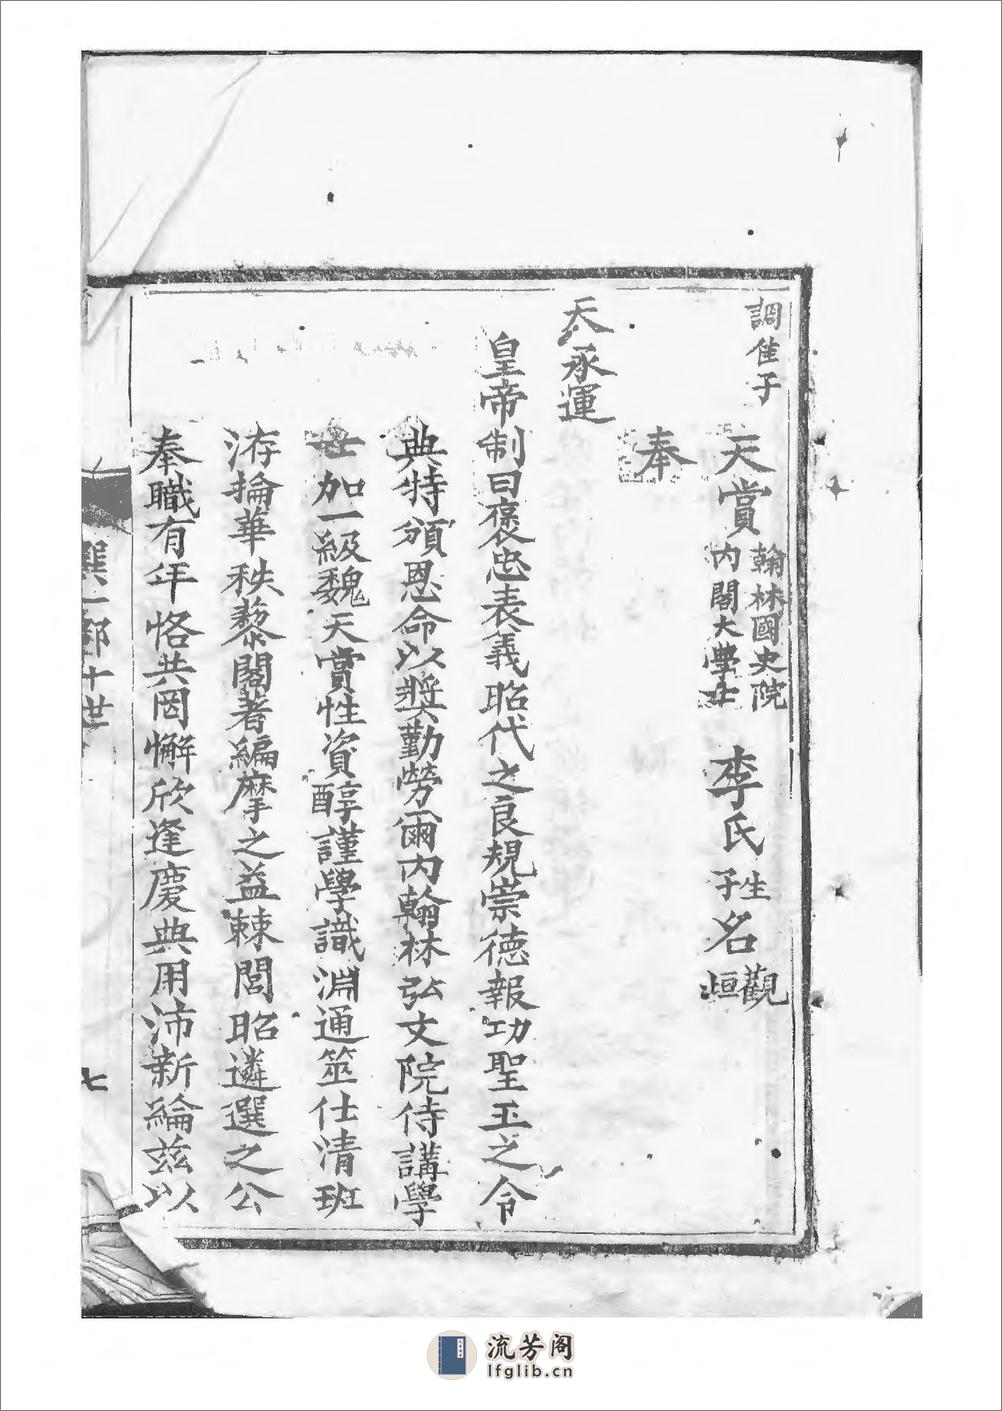 調隹子
天賞 翰林國史院 內閣大學士 李氏 生子 名 觀 烜
奉
天承運
皇帝制曰褒忠表義昭代之良規崇德報功聖王之令
典特頒恩命以奬勤勞爾內翰林弘文院侍講學
士加一級魏天賞性資醇謹學識淵通筮仕清班
洊掄華秩藜閣著編摩之益棘闈昭遴選之公
奉職有年恪共罔懈欣逢慶典用沛新綸茲以
巽一部十世
七
流芳阁
lfglib.cn